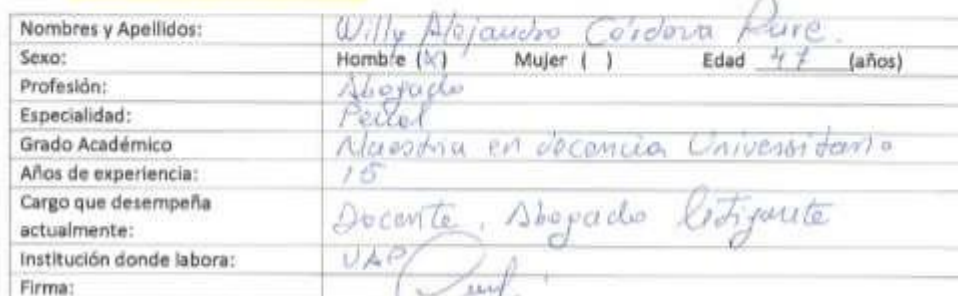 Nombres y Apellidos: Willy Alejandro Córdova Pure.
Sexo: Hombre (X) Mujer ( ) Edad 47 (años)
Profesión: Abogado
Especialidad: Penal
Grado Académico Maestria en docencia Universitaria
Años de experiencia: 15
Cargo que desempeña
actualmente: Docente, Abogado litigante
Institución donde labora: UAP
Firma: